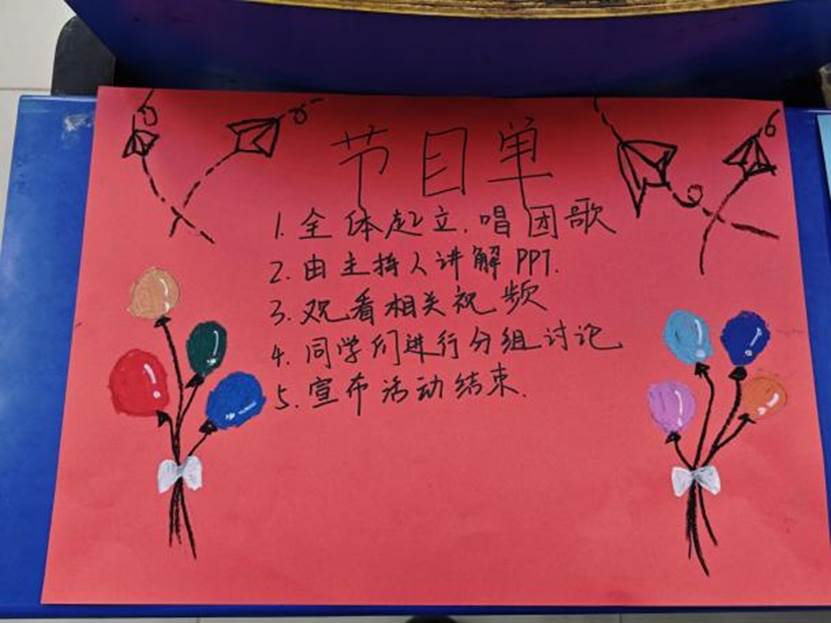 节目单
1. 全体起立.唱团歌
2. 由主持人讲解PPT.
3. 观看相关视频
4. 同学们进行分组讨论
5. 宣布活动结束.